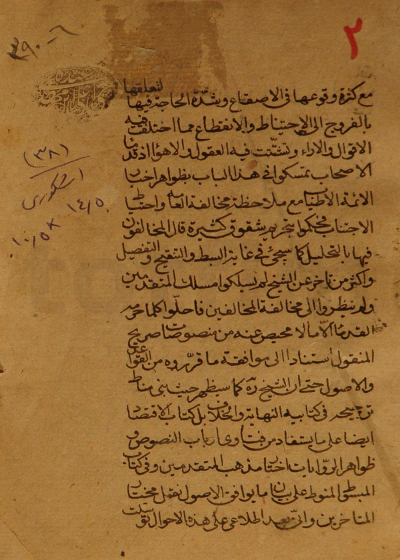 ٢
٣٩٠-٦
(٣٨١)
١٤/٥
١٠/٥ ×
مع كثرة وقوعها فى الاصقاع وشدّة الحاجة فيها لتعلقها
بالفروج الى الاحتياط والانقطاع عما اختلف فيه
الاقوال والاراء وتشتت فيه العقول والاهواء اذ قدما
الاصحاب تمسكوا فى هذا الباب بظواهر اخبار
الائمة الاطياب مع ملاحظة مخالفة العامة واحتياط
الاجتناب فحكموا بتحريم شقوق كثيرة قال المخالفون
فيها بالتحليل كما سيجئ فى غاية البسط والتنقيح والتفصيل
واكثر من تاخر عن الشيخ لم يسلكوا مسلك المتقدمين
ولم ينظروا الى مخالفة المخالفين فاحلّوا كلما حرمه
القدماء الّا ما لا محيص عنه من منصوصات صريح
المنقول استنادا الى موافقة ما قرّروه من القواعد
والاصول حتى ان الشيخ ره كما سيظهر حيث بنى مناط
ترجيحه فى كتابيه النهاية والخلاف بل كتاب الاقتصاد
ايضا على ما يستفاد من
ظواهر الروايات اختار مذهب المتقدمين وفى كتاب
المبسوط المنوط على بيان ما يوافق الاصول نقل مختار
المتاخرين وانى بعد اطلاعى على هذه الاحوال